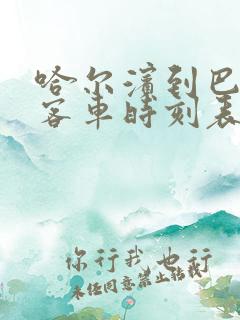 哈尔滨到巴
客车时刻表
你行我也行
未经同意禁止转载